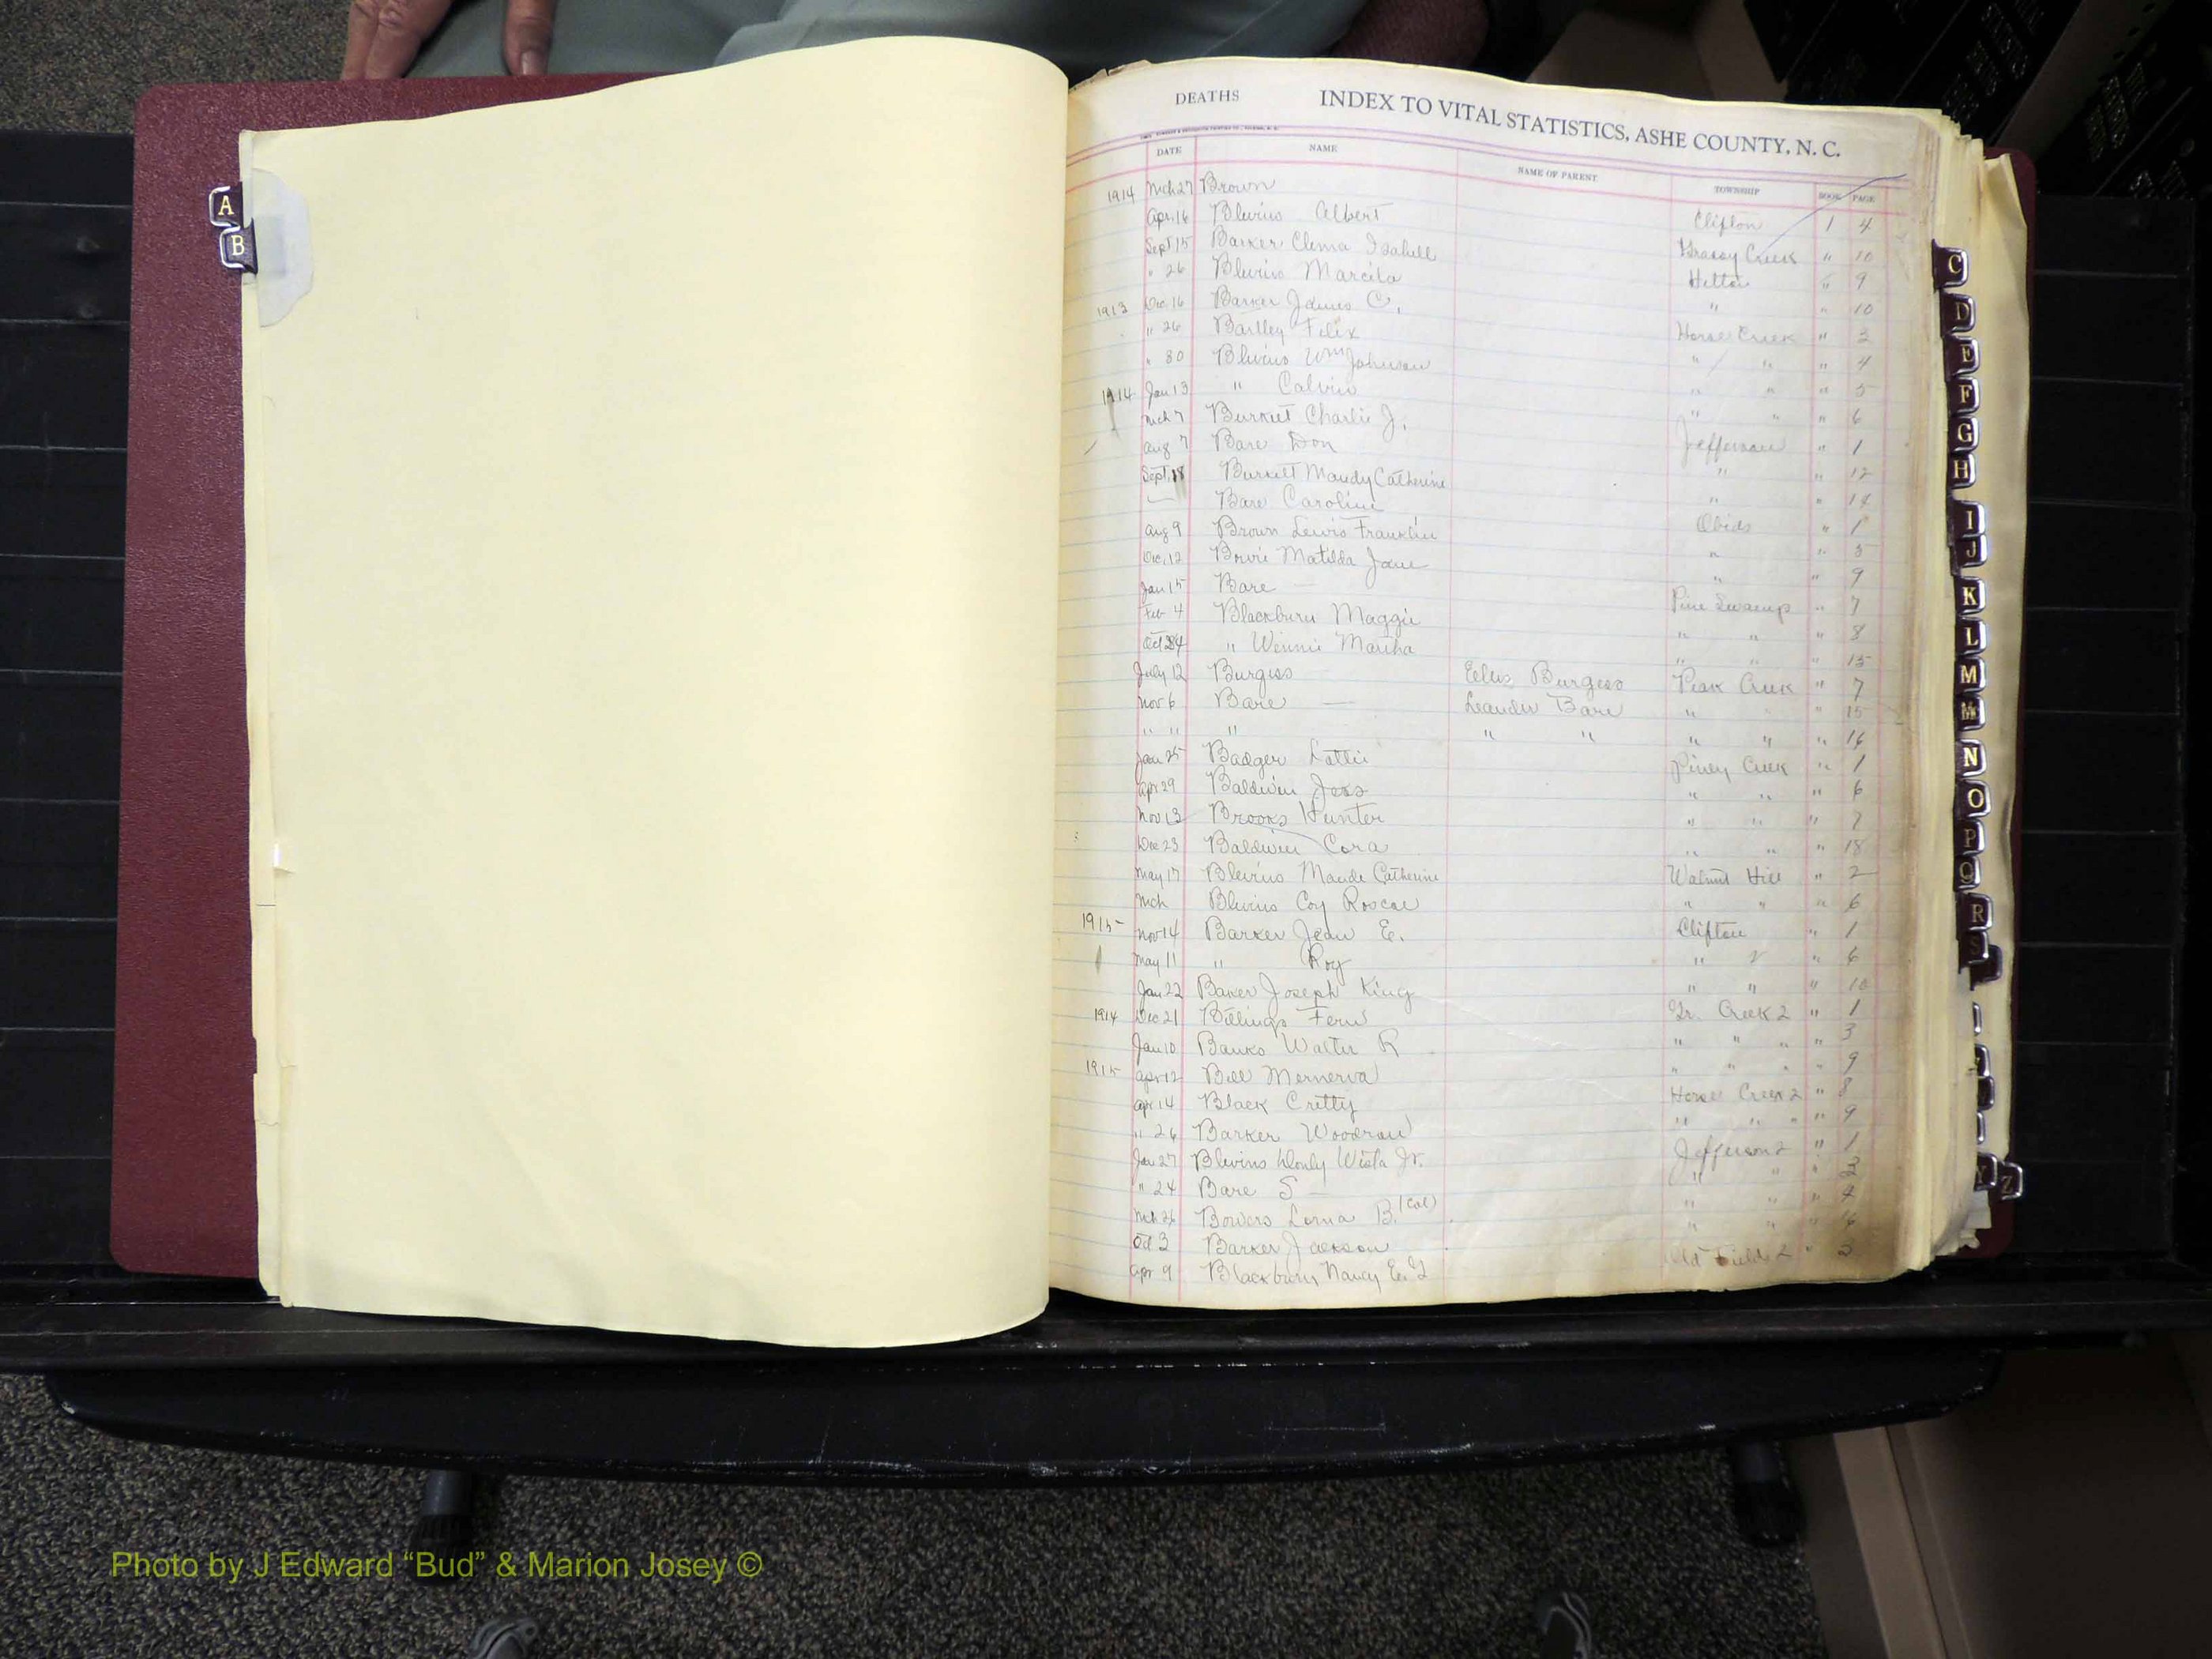 DEATHS INDEX TO VITAL STATISTICS, ASHE COUNTY, N. C.
DATE NAME NAME OF PARENT TOWNSHIP BOOK PAGE
1914 Mch 27 Brown Clifton 1 4
Apr. 16 Blevins Albert Grassy Creek " 10
Sept 15 Barker Clema Isabell Helton " 9
" 26 Blevins Marcila " " 10
1913 Dec. 16 Barker James C. Horse Creek " 3
" 26 Bartley Felix " " " 4
" 30 Blevins Wm Johnson " " " 5
1914 Jan 13 " Calvin " " " 6
Mch 7 Burket Charlie J. Jefferson " 1
Aug 7 Bare Don " " 12
Sept. 18 Burkett Mandy Catherine " " 14
Bare Caroline Obids " 1
Aug 9 Brown Lewis Franklin " " 5
Dec. 12 Bowie Matilda Jane " " 9
Jan 15 Bare — Pine Swamp " 7
Feb 4 Blackburn Maggie " " " 8
Oct 24 " Winnie Martha " " " 15
July 12 Burgess Burgess Peak Creek " 7
Nov 6 Bare — Leander Bare " " 15
" " " " " " " " 16
Jan 25 Badger Lattie Piney Creek " 1
Apr 29 Baldwin Jess " " " 6
Nov 13 Brooks Hunter " " " 7
Dec 23 Baldwin Cora " " " 18
May 17 Blevins Maude Catherine Walnut Hill " 2
Mch Blevins Coy Roscoe " " " 6
1915 Nov 14 Barker Jean E. Clifton " 1
May 11 " Roy " 2 " 6
Jan 22 Baker Joseph King " " " 10
1914 Dec 21 Billings Fern Gr. Creek 2 " 1
Jan 10 Banks Walter R " " " " 3
1915 Apr 12 Bell Mernerva " " " " 9
Apr 14 Black Critty Horse Creek 2 " 8
" 26 Barker Woodrow " " " " 9
Jan 27 Blevins Wista Jr. Jefferson 2 " 1
" 24 Bare S — " " " 3
Mch 26 Bowers Lorna B. (Col) " " " 4
Oct 3 Barker Jackson " " "
Apr 9 Blackburn Nancy E. Old Fields 2 " 3
A
B
C
D
E
F
G
H
I
J
K
L
M
Mc
N
O
P
Q
R
S
Y
Z
Photo by J Edward “Bud” & Marion Josey ©